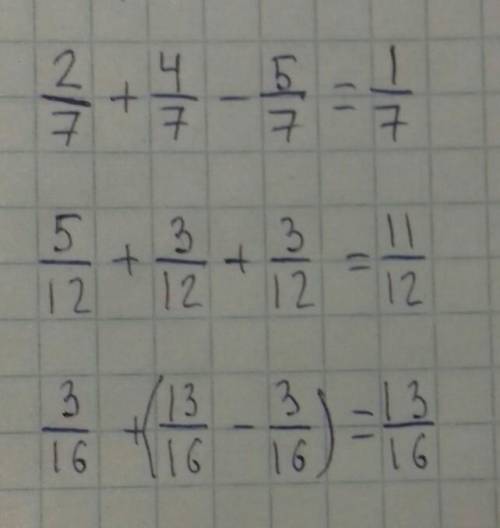 2/7 + 4/7 - 5/7 = 1/7
5/12 + 3/12 + 3/12 = 11/12
3/16 + (13/16 - 3/16) = 13/16